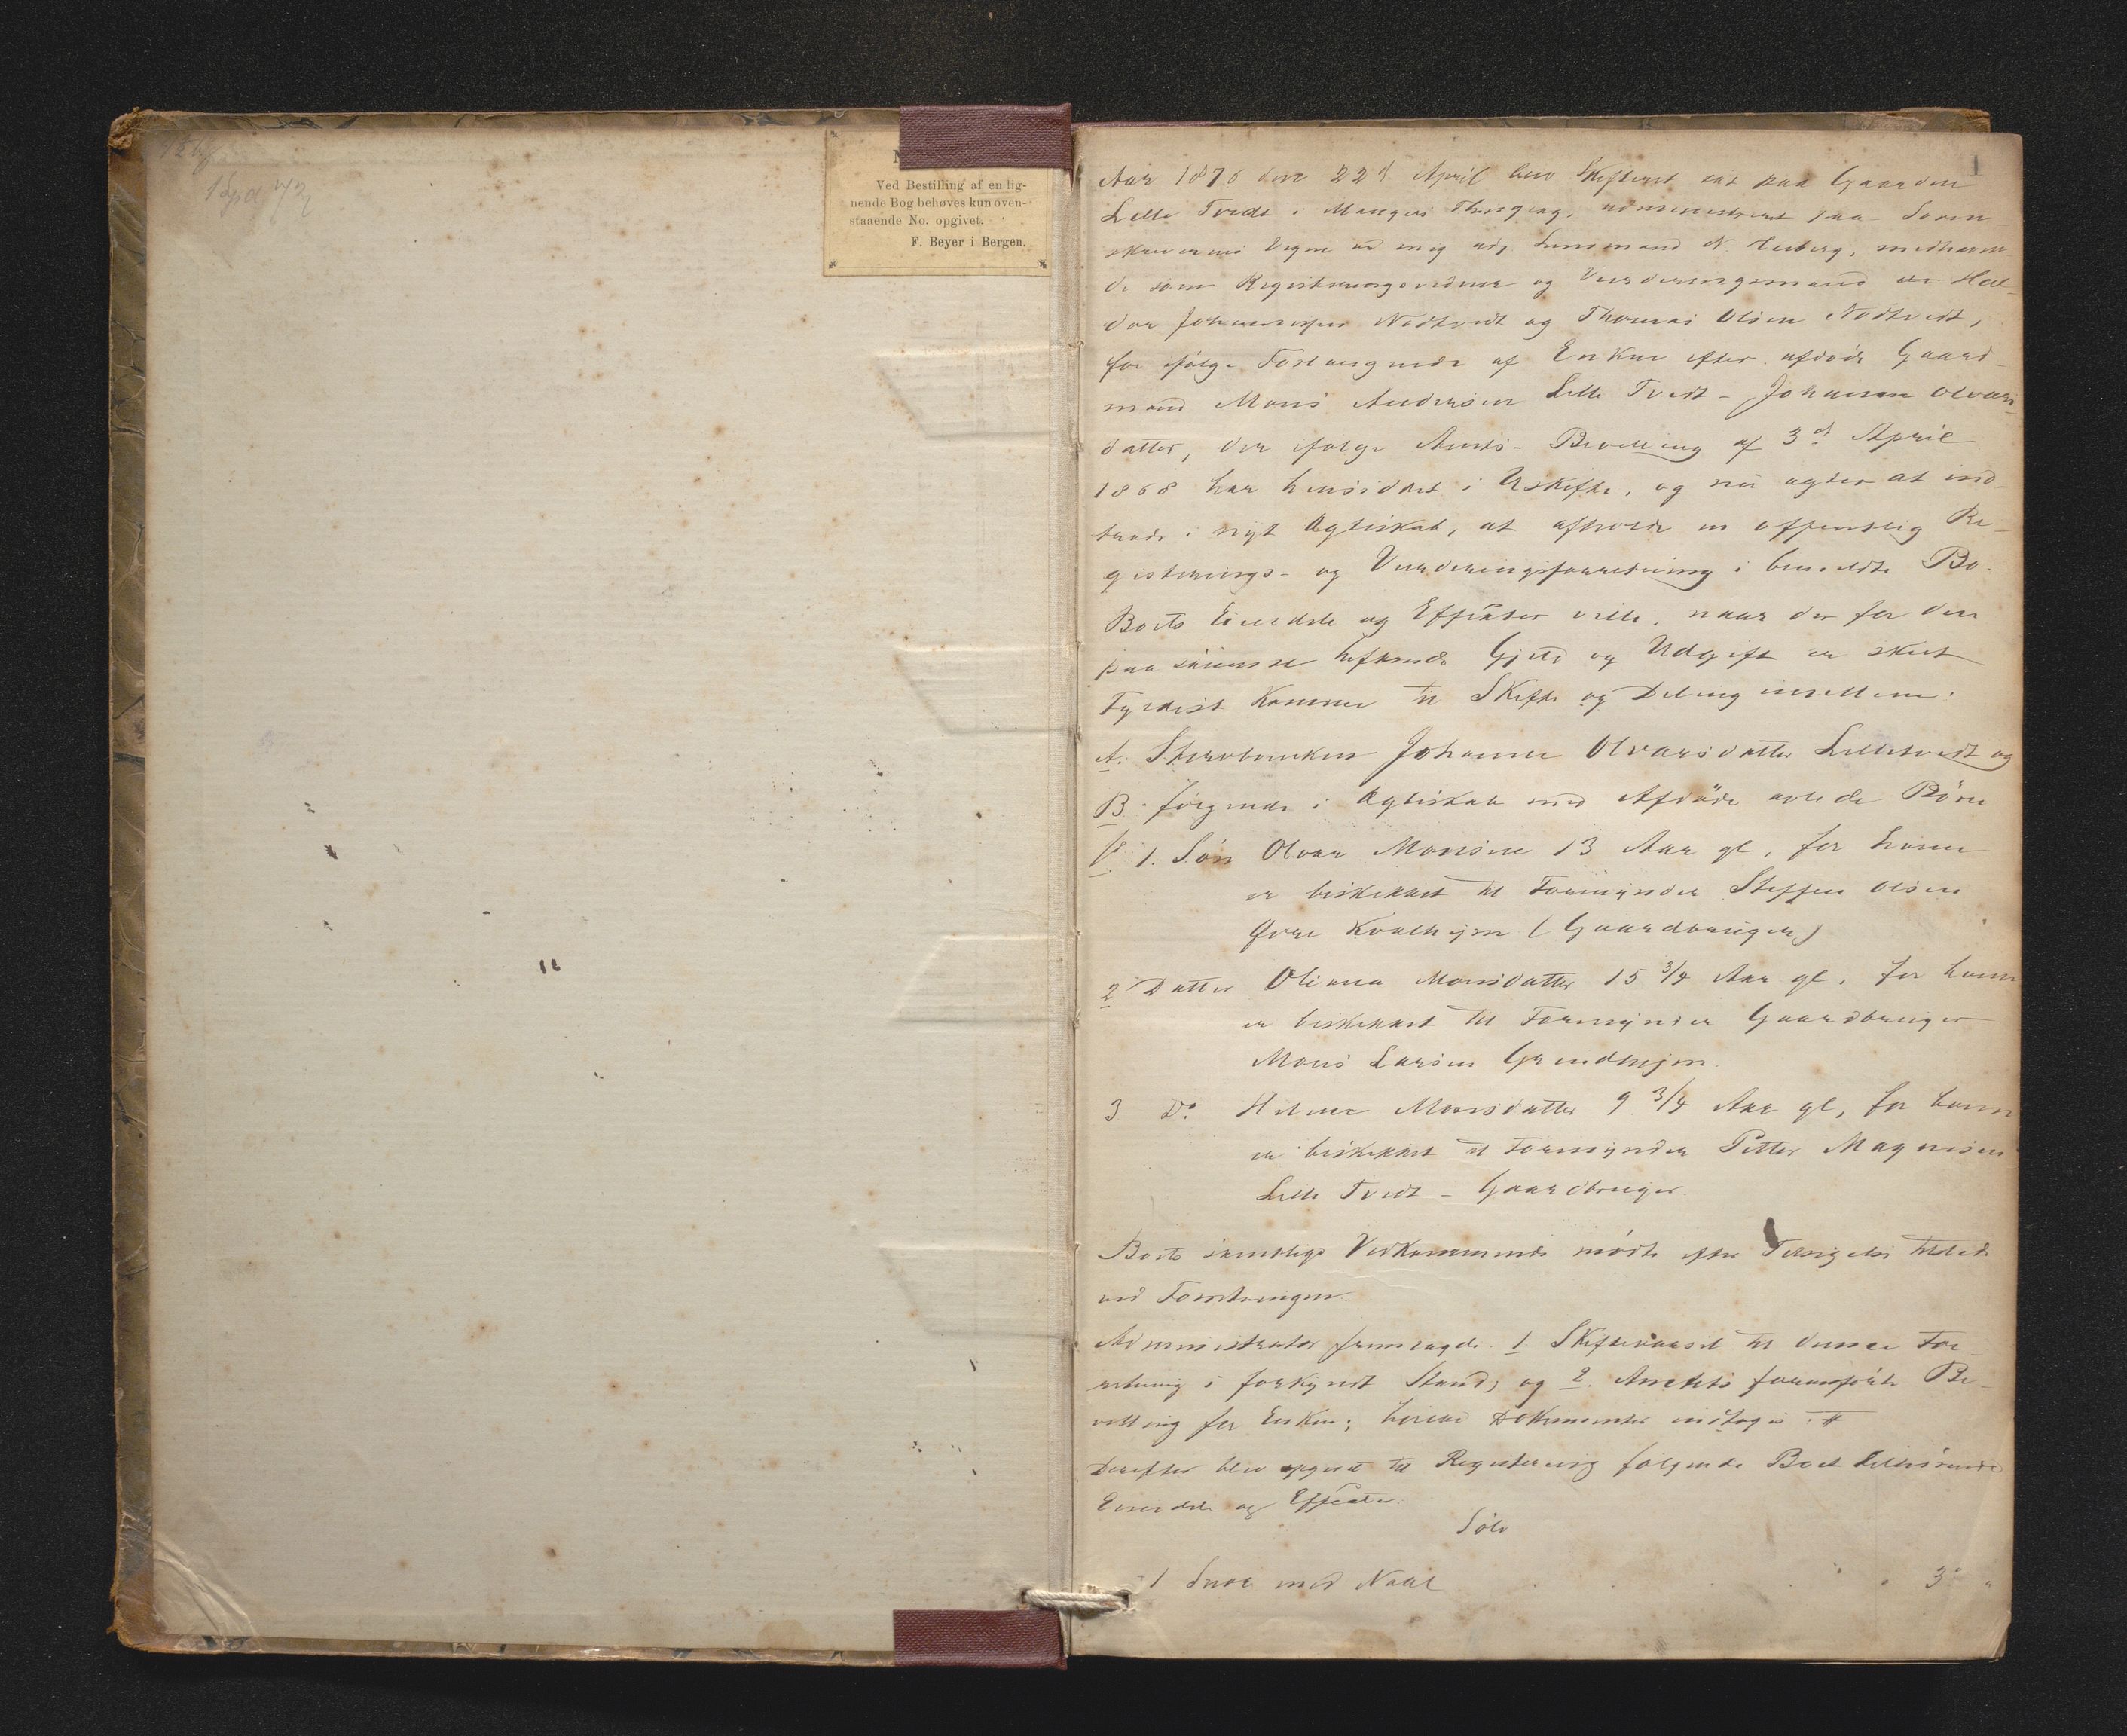 1 Spd 72
N
Ved Bestilling af en lig-
nende Bog behøves kun oven-
staaende No. opgivet.
F. Beyer i Bergen.
1
Aar 1876 den 22d April blev Skifteret sat paa Gaarden
Lille Tvedt i Mangers Thinglag, administreret paa Soren-
skriverens Vegne ved mig Lensmand N. medhavn-
de som Registreringsvidner og Vurderingsmænd Hal-
dor Johannessen Nedtvedt og Thomas Olsen Nedtvedt,
for ifølge Forlangende af Enken efter afdøde Gaard-
mand Mons Andersen Lille Tvedt - Johanne Olvars-
datter, der ifølge Amts-Bevilling af 3d April
1868 har hensiddet i Uskifte, og nu agter at ind-
træde i nyt Ægteskab, at afholde en offentlig Re-
gistrerings- og Vurderingsforretning i bemeldte Bo.
Boets Eiendele og Effekter ville, naar der for den
paa samme heftende Gjeld og Udgift er skeet
Fyldest komme til Skifte og Deling imellem:
A. Sterbenken Johanne Olvarsdatter Lilletvedt og
B. følgende i Ægteskab med Afdøde avlede Børn
1. Søn Olvar Monsen 13 Aar gl, for ham
er beskikket til Formynder Steffen Olsen
Øvre Kvalhejm (Gaardbruger)
2 Datter Oliana Monsdatter 15 3/4 Aar gl, for hvem
er beskikket til Formynder Gaardbruger
Mons Larsen Grindhejm.
3 Do. Helene Monsdatter 9 3/4 Aar gl, for hvem
er beskikket til Formynder Petter Magnesen
Lille Tvedt - Gaardbruger.
Boets samtlige Vedkommende mødte efter Tilsigelse tilstede
ved Forretningen.
Administrator fremlagde 1 Skiftevarsel til denne For-
retning i forkyndt Stand, og 2. Amtets foranførte Be-
villing for Enken; hvilke Dokumenter indtages #
Derefter blev opgivet til Registrering følgende Boet tilhørende
Eiendele og Effekter.
Sølv
1 med Naal . . . . . 3 "